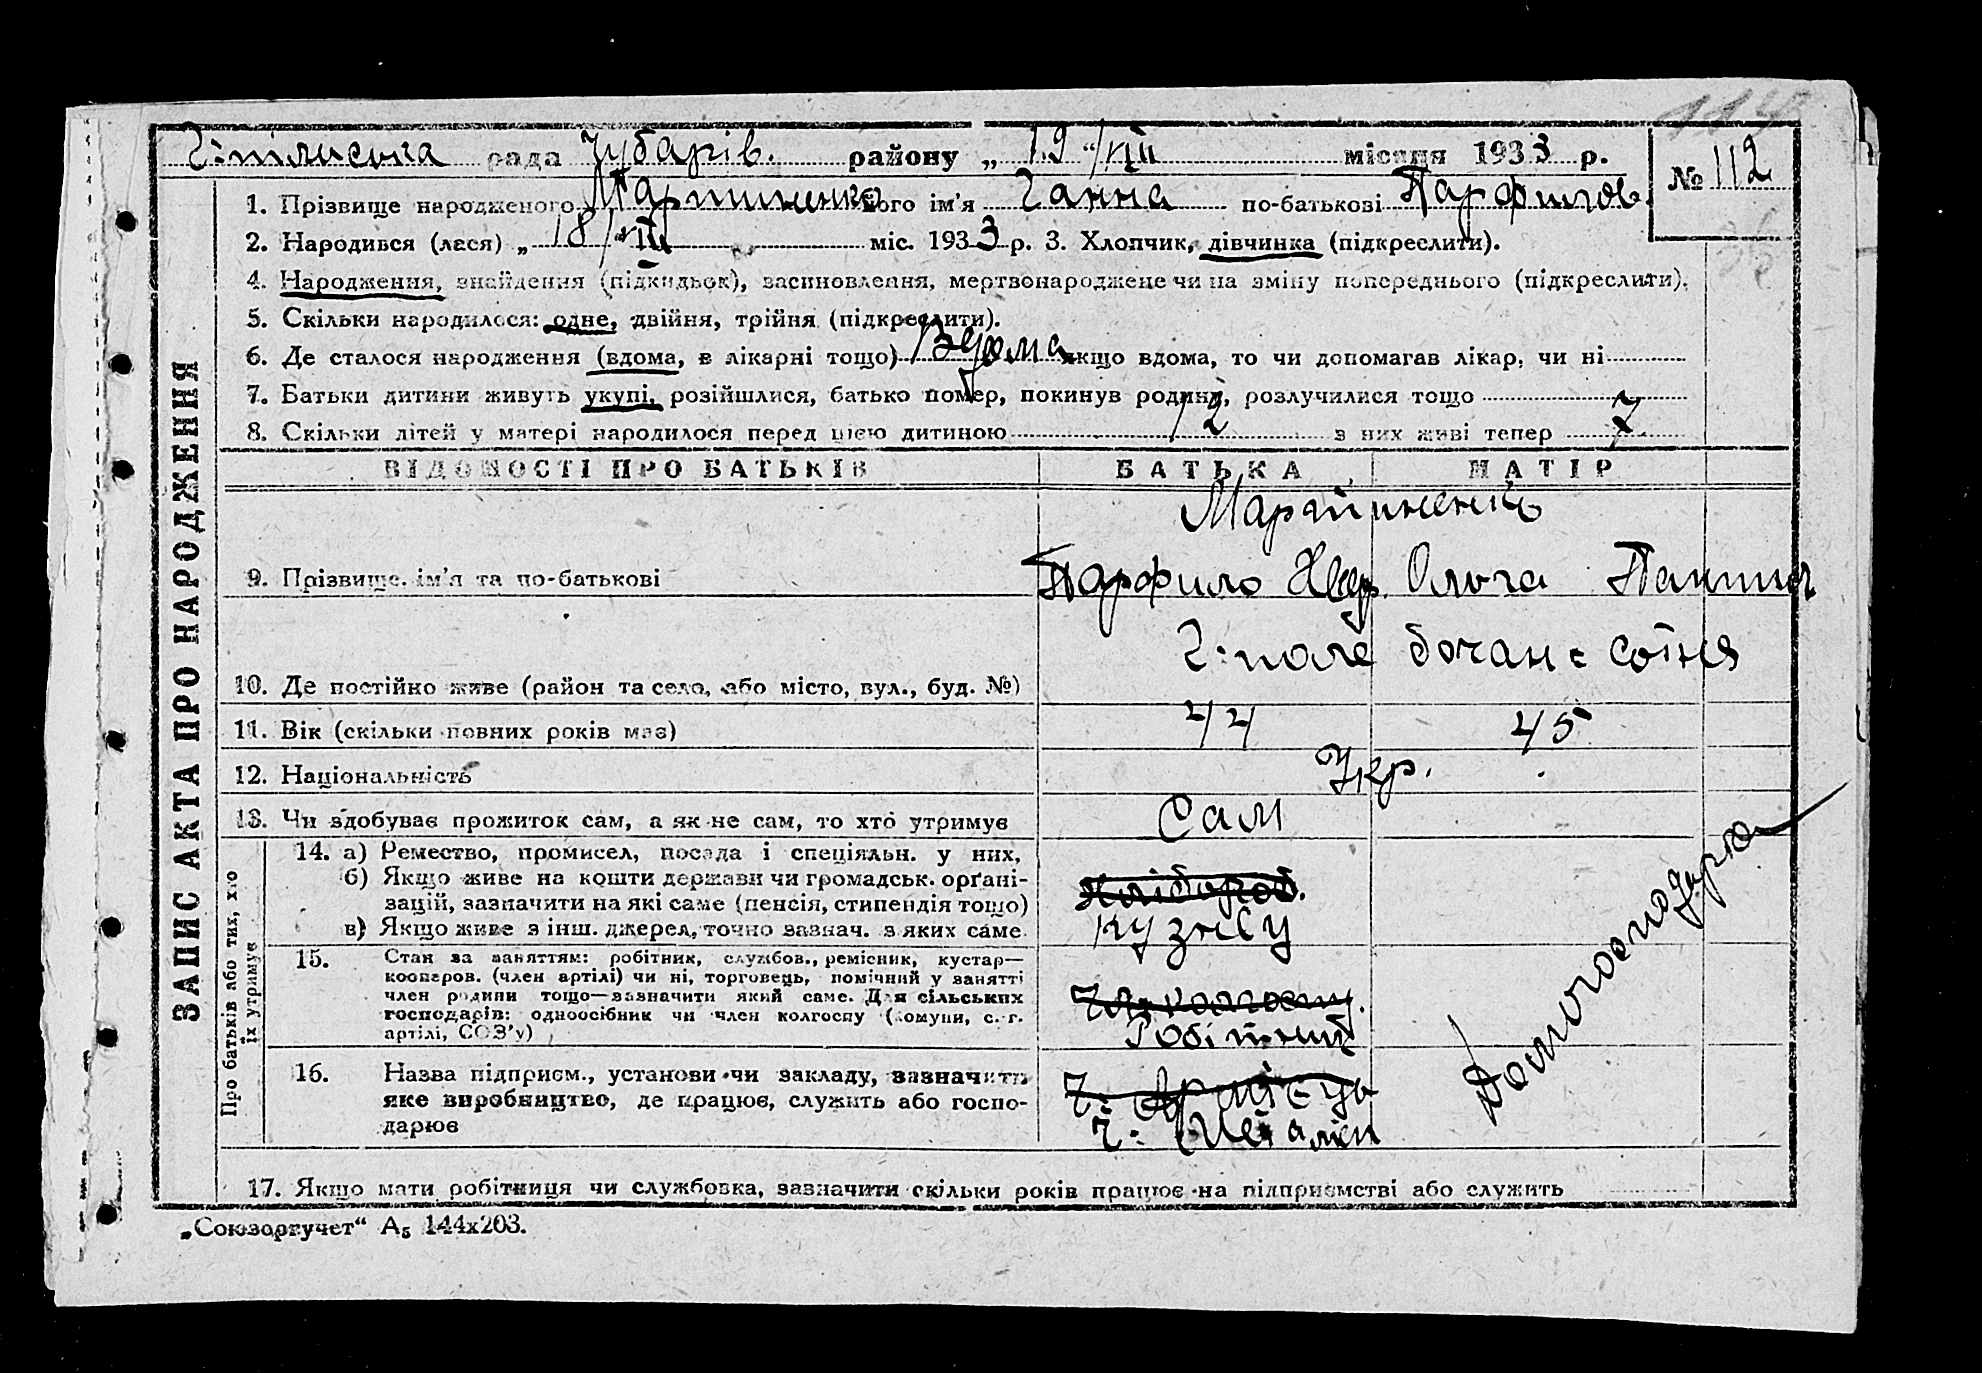 119
Г-пільська рада Чубарів. району „ 19 “/VIII місяця 1933 р.
№ 112
1. Прізвище народженого Мартиненко його ім’я Ганна по-батькові Парфилов.
2. Народився (лася) „ 18/VIII міс. 1933 р. 3. Хлопчик, дівчинка (підкреслити).
4. Народження, знайдення (підкидьок), засиновлення, мертвонароджене чи на зміну попереднього (підкреслити).
5. Скільки народилося: одне, двійня, трійня (підкреслити).
6. Де сталося народження (вдома, в лікарні тощо) Вдома якщо вдома, то чи допомагав лікар, чи ні
7. Батьки дитини живуть укупі, розійшлися, батько помер, покинув родину, розлучилися тощо
8. Скільки дітей у матері народилося перед цією дитиною 12 з них живі тепер 7
ЗАПИС АКТА ПРО НАРОДЖЕННЯ
ВІДОМОСТІ ПРО БАТЬКІВ БАТЬКА МАТІР
Мартиненки
9. Прізвище, ім’я та по-батькові Парфило Ольга
Г-поле сотня
10. Де постійно живе (район та село, або місто, вул., буд. №)
11. Вік (скільки повних років має) 44 45
12. Національність Укр.
13. Чи здобуває прожиток сам, а як не сам, то хто утримує Сам
Про батьків або тих, хто їх утримує
14. а) Ремество, промисел, посада і спеціяльн. у них,
б) Якщо живе на кошти держави чи громадськ. орґані-
зацій, зазначити на які саме (пенсія, стипендія тощо) хлібороб.
в) Якщо живе з інш. джерел, точно зазнач. з яких саме
15. Стан за заняттям: робітник, службов., ремісник, кустар—
кооперов. (член артілі) чи ні, торговець, помічний у занятті
член родини тощо—зазначити який саме. Для сільських
господарів: одноосібник чи член колгоспу (комуни, с.-г. чл. колгоспу.
артілі, СОЗ’у) Робітник
Домогосподарка
16. Назва підприєм., установи чи закладу, зазначити
яке виробництво, де працює, служить або госпо-
дарює
17. Якщо мати робітниця чи службовка, зазначити скільки років працює на підприємстві або служить
„Союзоргучет“ А₅ 144х203.